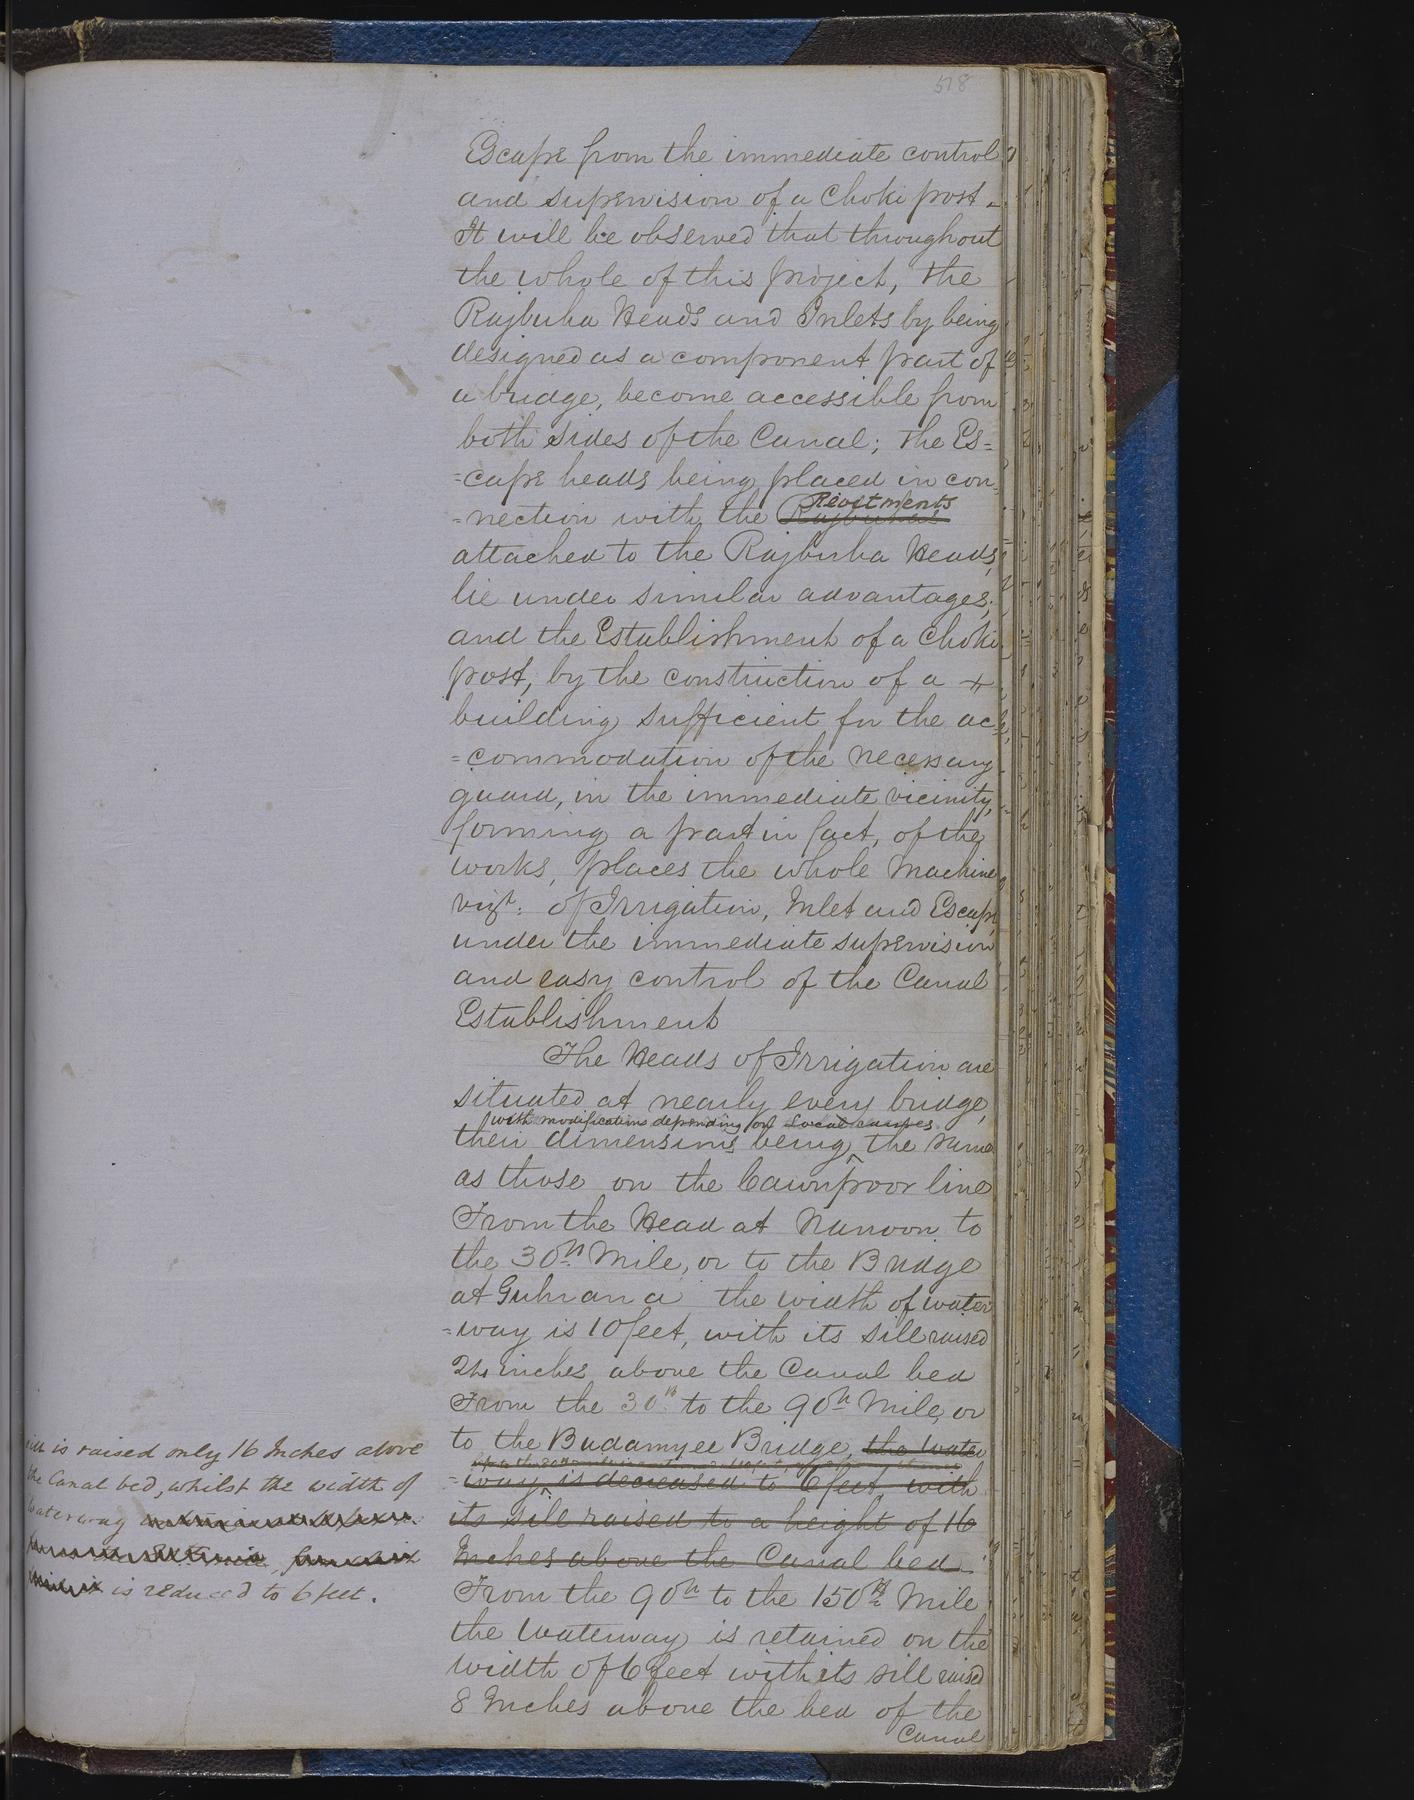 518
Escape from the immediate control
and supervision of a Choki post.
It will be observed that throughout
the whole of this project, the
Rajbuha Heads and Inlets by being
designed as a component part of
a bridge, become accessible from
both sides of the Canal; the Es=
=cape heads being placed in con=
Revetments
=nection with the Rajbuhas
attached to the Rajbuha Heads,
lie under similar advantages;
and the Establishment of a Choki
post, by the construction of a
building sufficient for the ac=
=commodation of the necessary
guard, in the immediate vicinity,
forming a part in fact, of the
works, places the whole Machine
vizt: of Irrigation, Inlet and Escape,
under the immediate supervision
and easy control of the Canal
Establishment
The Heads of Irrigation are
situated at nearly every bridge,
with modifications depending on local causes
their dimensions being the same
as those on the Cawnpoor line
From the Head at Nanoon to
the 30th Mile, or to the Bridge
at Guhrana the width of water
=way is 10 feet, with its sill raised
24 inches above the Canal bed
From the 30th to the 90th Mile, or
to the Budamyee Bridge, the water
=way is decreased to 6 feet, with
its sill raised to a height of 16
Inches above the Canal bed.
From the 90th to the 150th Mile
the waterway is retained on the
width of 6 feet with its sill raised
8 Inches above the bed of the
Canal
sill is raised only 16 Inches above
the Canal bed, whilst the width of
waterway
is reduced to 6 feet.